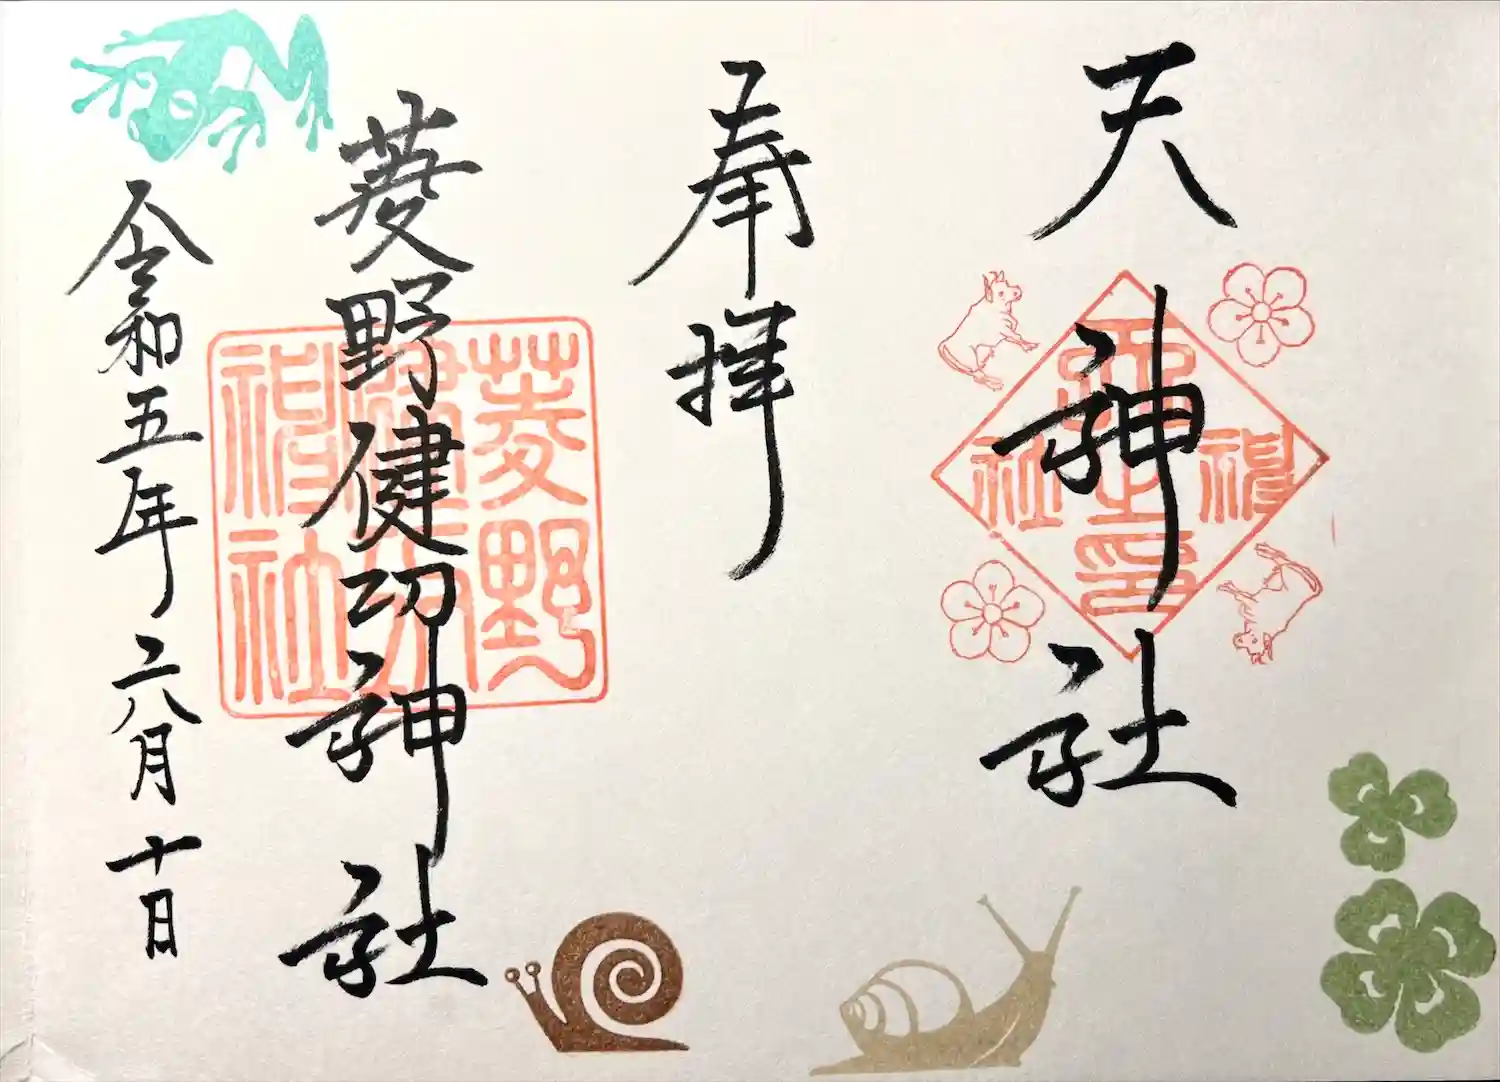 天神社
天神社之印
奉拝
菱野健功神社
菱野
健功
神社
令和五年六月十日